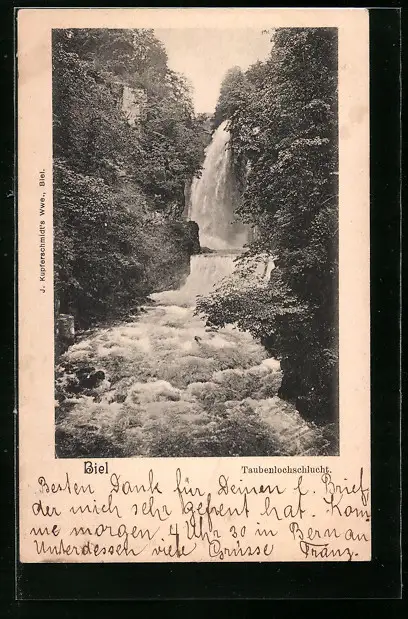 J. Kupferschmidt's Wwe., Biel.
Biel
Taubenlochschlucht.
Besten Dank für Deinen l. Brief
der mich sehr gefreut hat. Kom-
me morgen 4 Uhr 30 in Bern an
Unterdessen viele Grüsse Franz.